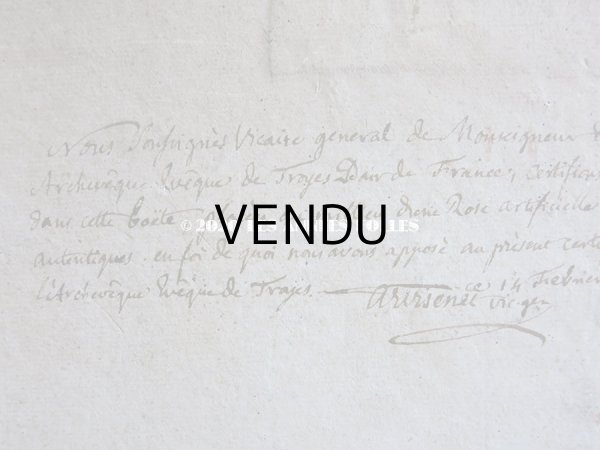 Nous Soussignés Vicaire general de Monseigneur
Archevêque Evêque de Troyes Pair de France, certifions
dans cette boëte d'une Rose artificielle
VENDU
autentiques. en foi de quoi nous avons apposé au présent
l'Archevêque Evêque de Troyes. ce 14 Fevrier
vic. gen